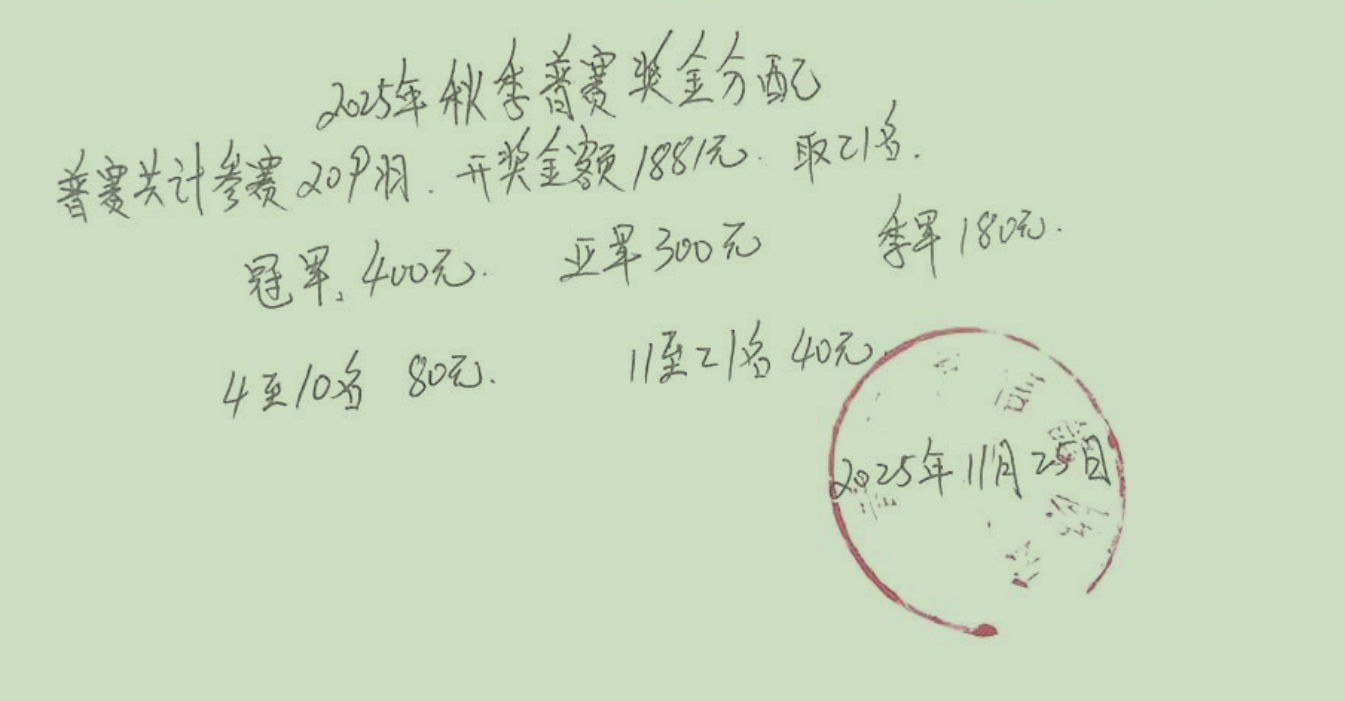 2025年秋季普赛奖金分配
普赛共计参赛209羽.开奖金额1881元.取21名.
冠军.400元. 亚军300元 季军180元.
4至10名 80元. 11至21名 40元
2025年11月25日